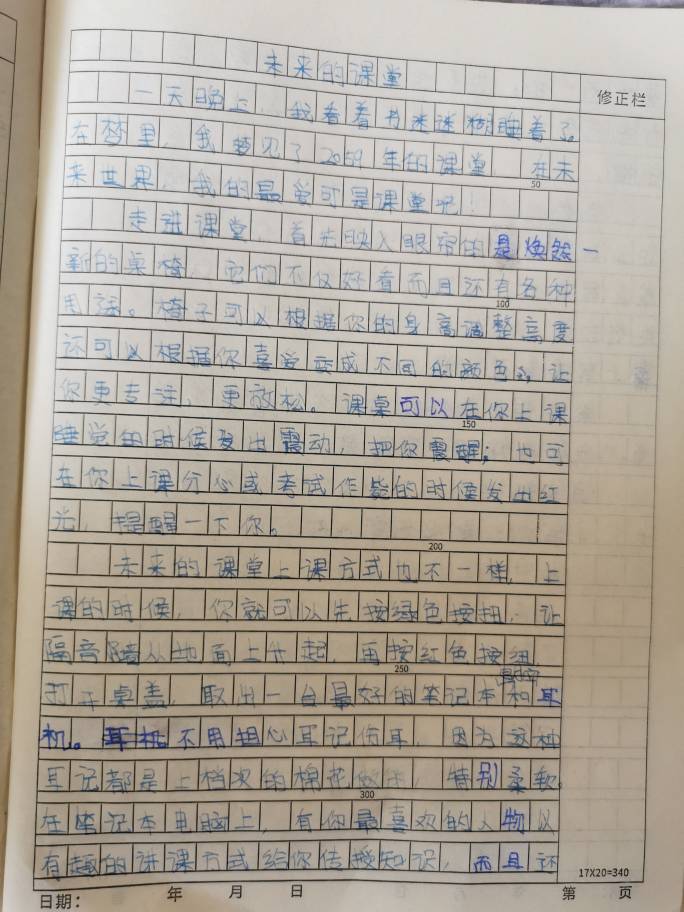 未来的课堂
修正栏
一天晚上，我看着书迷迷糊睡着了。
在梦里，我梦见了2059年的课堂，在未
50
来世界，我的最爱可是课堂吧！
走进课堂，首先映入眼帘的是焕然一
新的桌椅，它们不仅好看而且还有各种
100
用途。椅子可以根据你的身高调整高度
还可以根据你喜爱变成不同的颜色，让
你更专注，更放松。课桌可以在你上课
150
睡觉的时候发出震动，把你震醒；也可
在你上课分心或考试作弊的时候发出红
光，提醒一下你。
200
未来的课堂上课方式也不一样，上
课的时候，你就可以先按绿色按扭，让
隔音墙从地面上升起，再按红色按纽
250
打开桌盖，取出一台最好的笔记本和耳
机。不用担心耳记伤耳，因为这种
耳记都是上档次的棉花做，特别柔软。
300
在笔记本电脑上，有你最喜欢的人物以
有趣的讲课方式给你传授知识，而且还
17X20=340
日期： 年 月 日 第 页